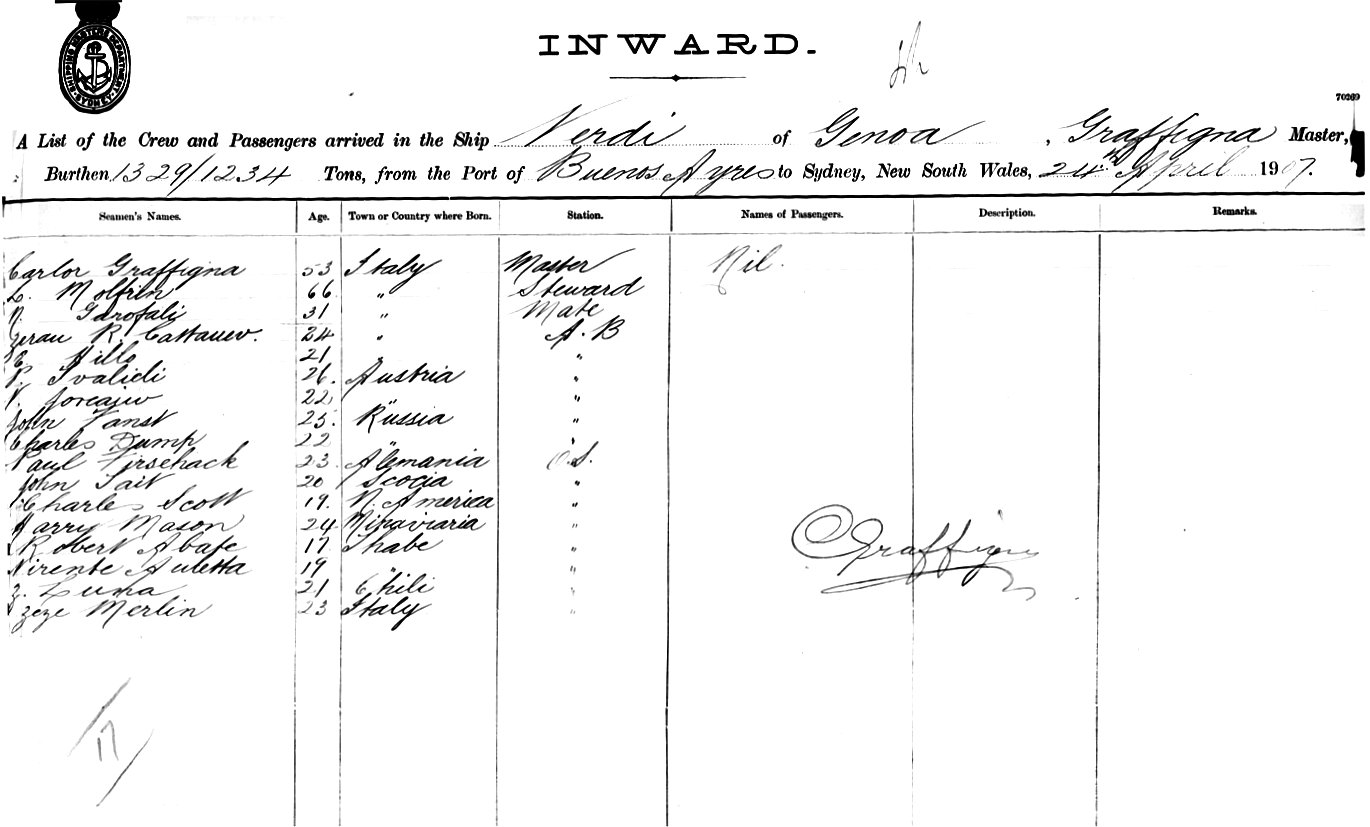 SHIPPING MASTERS DEPARTMENT
INWARD.
70269
A List of the Crew and Passengers arrived in the Ship Verdi of Genoa, Graffigna Master,
Burthen 1329/1234 Tons, from the Port of Buenos Ayres to Sydney, New South Wales, 24th April 1907.
Seamen's Names. Age. Town or Country where Born. Station. Names of Passengers. Description. Remarks.
Carlor Graffigna 53 Italy Master Nil.
L. 66 " Steward
N. Garofali 31 " Mate
R. 24 " A.B
21 " "
26 Austria "
22 " "
John 25 Russia "
Charles Dump 22 " "
Paul Firsehack 23 Alemania O.S.
John Tait 20 Scocia "
Charles Scott 19 N. America "
Harry Mason 24 "
Robert Abate 17 "
Auletta 19 " "
Z. Luma 21 Chili "
Zeze Merlin 23 Italy "
C Graffigna
17